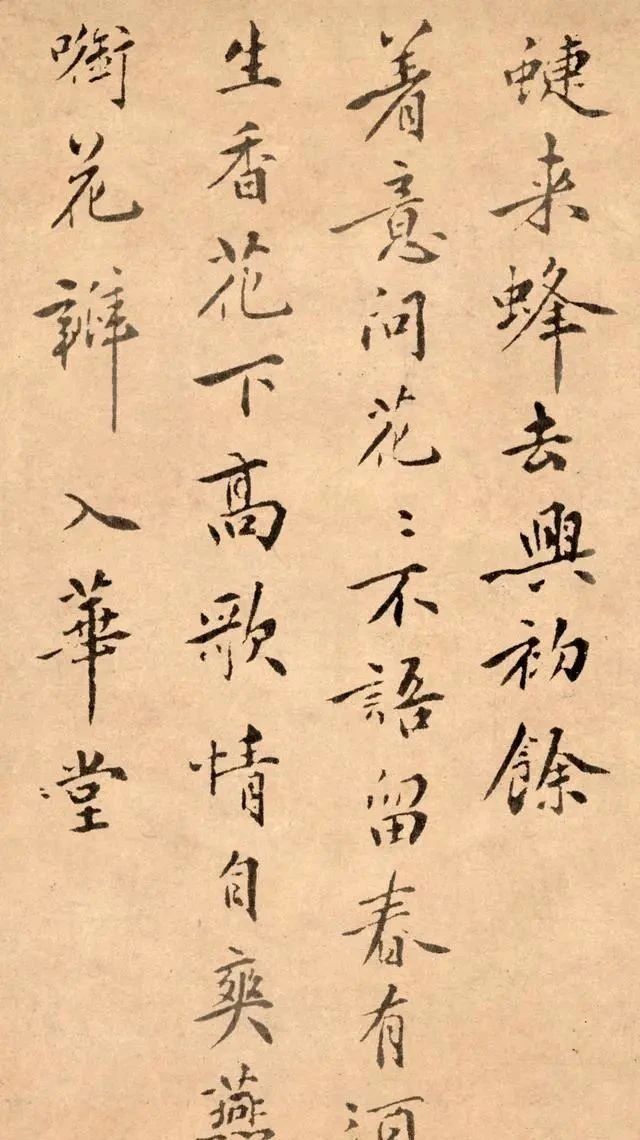 蜨来蜂去興初餘
着意问花〻不語留春有
生香花下高歌情自爽燕
㘅花瓣入華堂